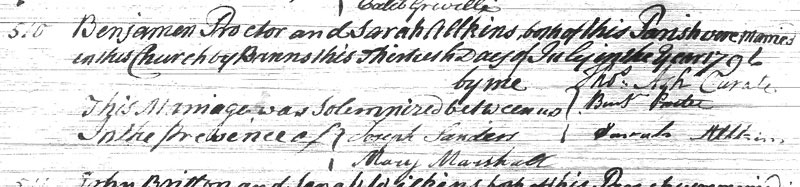 Caleb Greville
510 Benjamen Proctor and Sarah Attkins, both of this Parish were married
in this Church by Banns this Thirteeth Day of July in the Year 179
by me Thos. Ash Curate
This Marriage was Solemnized between us { Benj Procter
In the Presence of { Joseph Sanders { Sarah Attkins
Mary Marshall
John Britton and Sarah both of this Parish were married